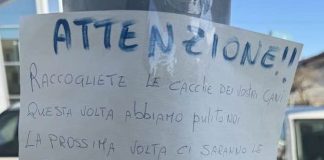 ATTENZIONE!!
RACCOGLIETE LE CACCHE DEI VOSTRI CANI
QUESTA VOLTA ABBIAMO PULITO NOI
LA PROSSIMA VOLTA CI SARANNO LE